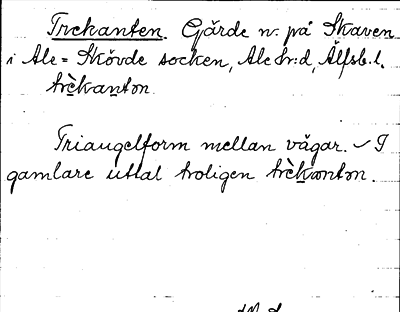 Trekanten. Gärde n. på Skaven
i Ale-Skövde socken, Ale hr:d, Älfsb. l.
trèkantɔn
Triangelform mellan vägar. I
gamlare uttal troligen trèkantɔn.